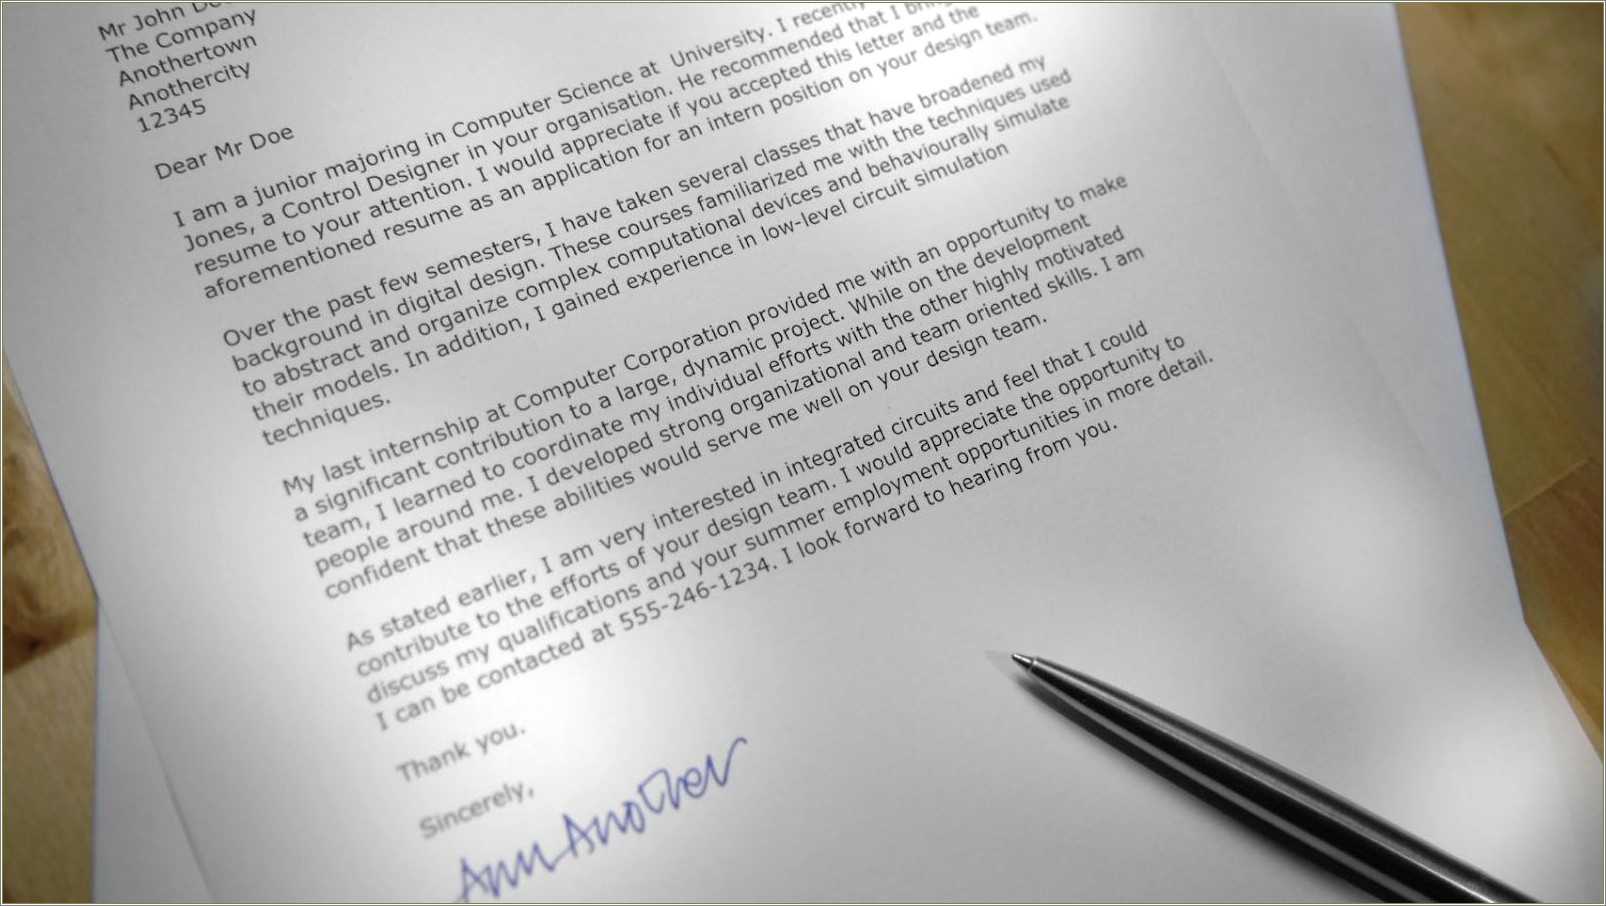 Mr John
The Company
Anothertown
Anothercity
12345
Dear Mr Doe
I am a junior majoring in Computer Science at University. I recently
Jones, a Control Designer in your organisation. He recommended that I
resume to your attention. I would appreciate if you accepted this letter and the
aforementioned resume as an application for an intern position on your design team.
Over the past few semesters, I have taken several classes that have broadened my
background in digital design. These courses familiarized me with the techniques used
to abstract and organize complex computational devices and behaviourally simulate
their models. In addition, I gained experience in low-level circuit simulation
techniques.
My last internship at Computer Corporation provided me with an opportunity to make
a significant contribution to a large, dynamic project. While on the development
team, I learned to coordinate my individual efforts with the other highly motivated
people around me. I developed strong organizational and team oriented skills. I am
confident that these abilities would serve me well on your design team.
As stated earlier, I am very interested in integrated circuits and feel that I could
contribute to the efforts of your design team. I would appreciate the opportunity to
discuss my qualifications and your summer employment opportunities in more detail.
I can be contacted at 555-246-1234. I look forward to hearing from you.
Thank you.
Sincerely,
Ann Another